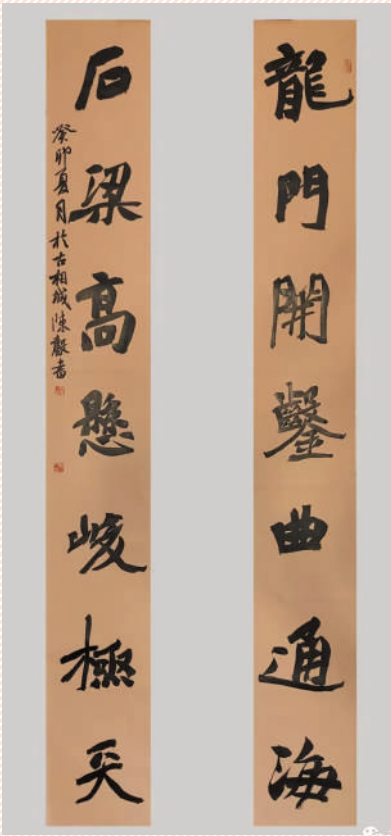 龍門開鑿曲通海
石梁高懸峻極天
癸卯夏月於古相城陳毅書